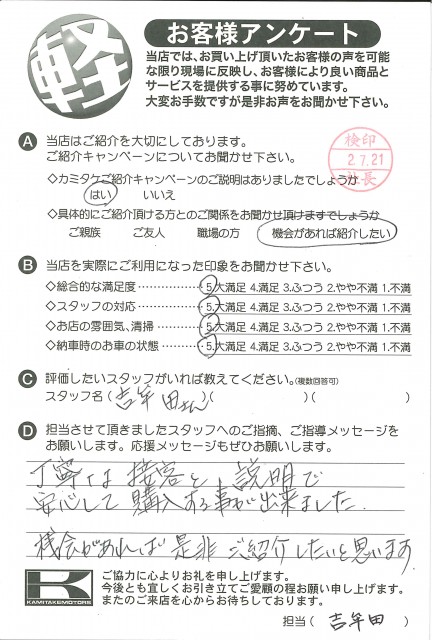 軽
お客様アンケート
当店では、お買い上げ頂いたお客様の声を可能
な限り現場に反映し、お客様により良い商品と
サービスを提供する事に努めています。
大変お手数ですが是非お声をお聞かせ下さい。
A 当店はご紹介を大切にしております。
ご紹介キャンペーンについてお聞かせ下さい。
検印
2.7.21
社長
◇カミタケご紹介キャンペーンのご説明はありましたでしょうか
はい いいえ
◇具体的にご紹介頂ける方とのご関係をお聞かせ頂けますでしょうか
ご親族 ご友人 職場の方 機会があれば紹介したい
B 当店を実際にご利用になった印象をお聞かせ下さい。
◇総合的な満足度………………5.大満足 4.満足 3.ふつう 2.やや不満 1.不満
◇スタッフの対応………………5.大満足 4.満足 3.ふつう 2.やや不満 1.不満
◇お店の雰囲気、清掃…………5.大満足 4.満足 3.ふつう 2.やや不満 1.不満
◇納車時のお車の状態…………5.大満足 4.満足 3.ふつう 2.やや不満 1.不満
C 評価したいスタッフがいれば教えてください。(複数回答可)
スタッフ名(吉牟田さん)( )( )
D 担当させて頂きましたスタッフへのご指摘、ご指導メッセージを
お願いします。応援メッセージもぜひお願いします。
丁寧な接客と、説明で
安心して購入する事が出来ました。
機会があれば是非ご紹介したいと思います
K
KAMITAKEMOTORS
ご協力に心よりお礼を申し上げます。
今後とも宜しくお引き立てご愛顧の程お願い申し上げます。
またのご来店を心からお待ちしております。
担当( 吉牟田 )